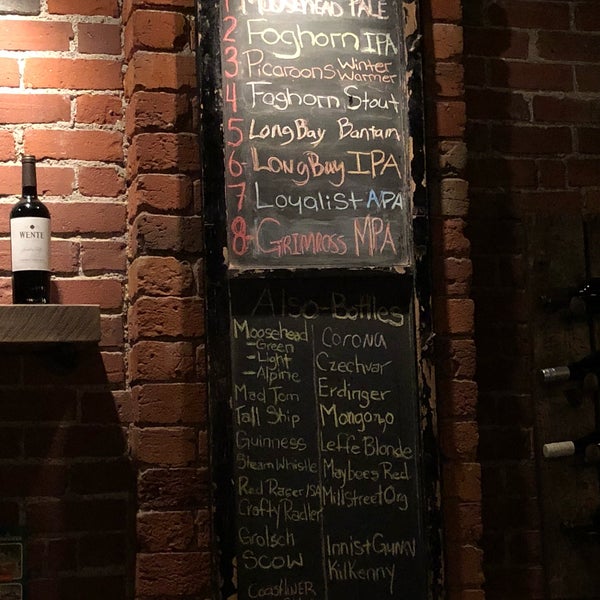 1 MOOSEHEAD PALE
2 Foghorn IPA
3 Picaroons Winter Warmer
4 Foghorn Stout
5 LONG BAY BANTAM
6- LONG BAY IPA
7 Loyalist APA
8- GRIMROSS MPA
WENTE
Also-Bottles
Moosehead
-Green
-Light
-Alpine
Mad Tom
Tall Ship
Guinness
Steam Whistle
Red Racer ISA
Crafty Radler
Grolsch
SCOW
Corona
Czechvar
Erdinger
Mongozo
Leffe Blonde
Maybees Red
Millstreet Org
Innis + Gunn
Kilkenny